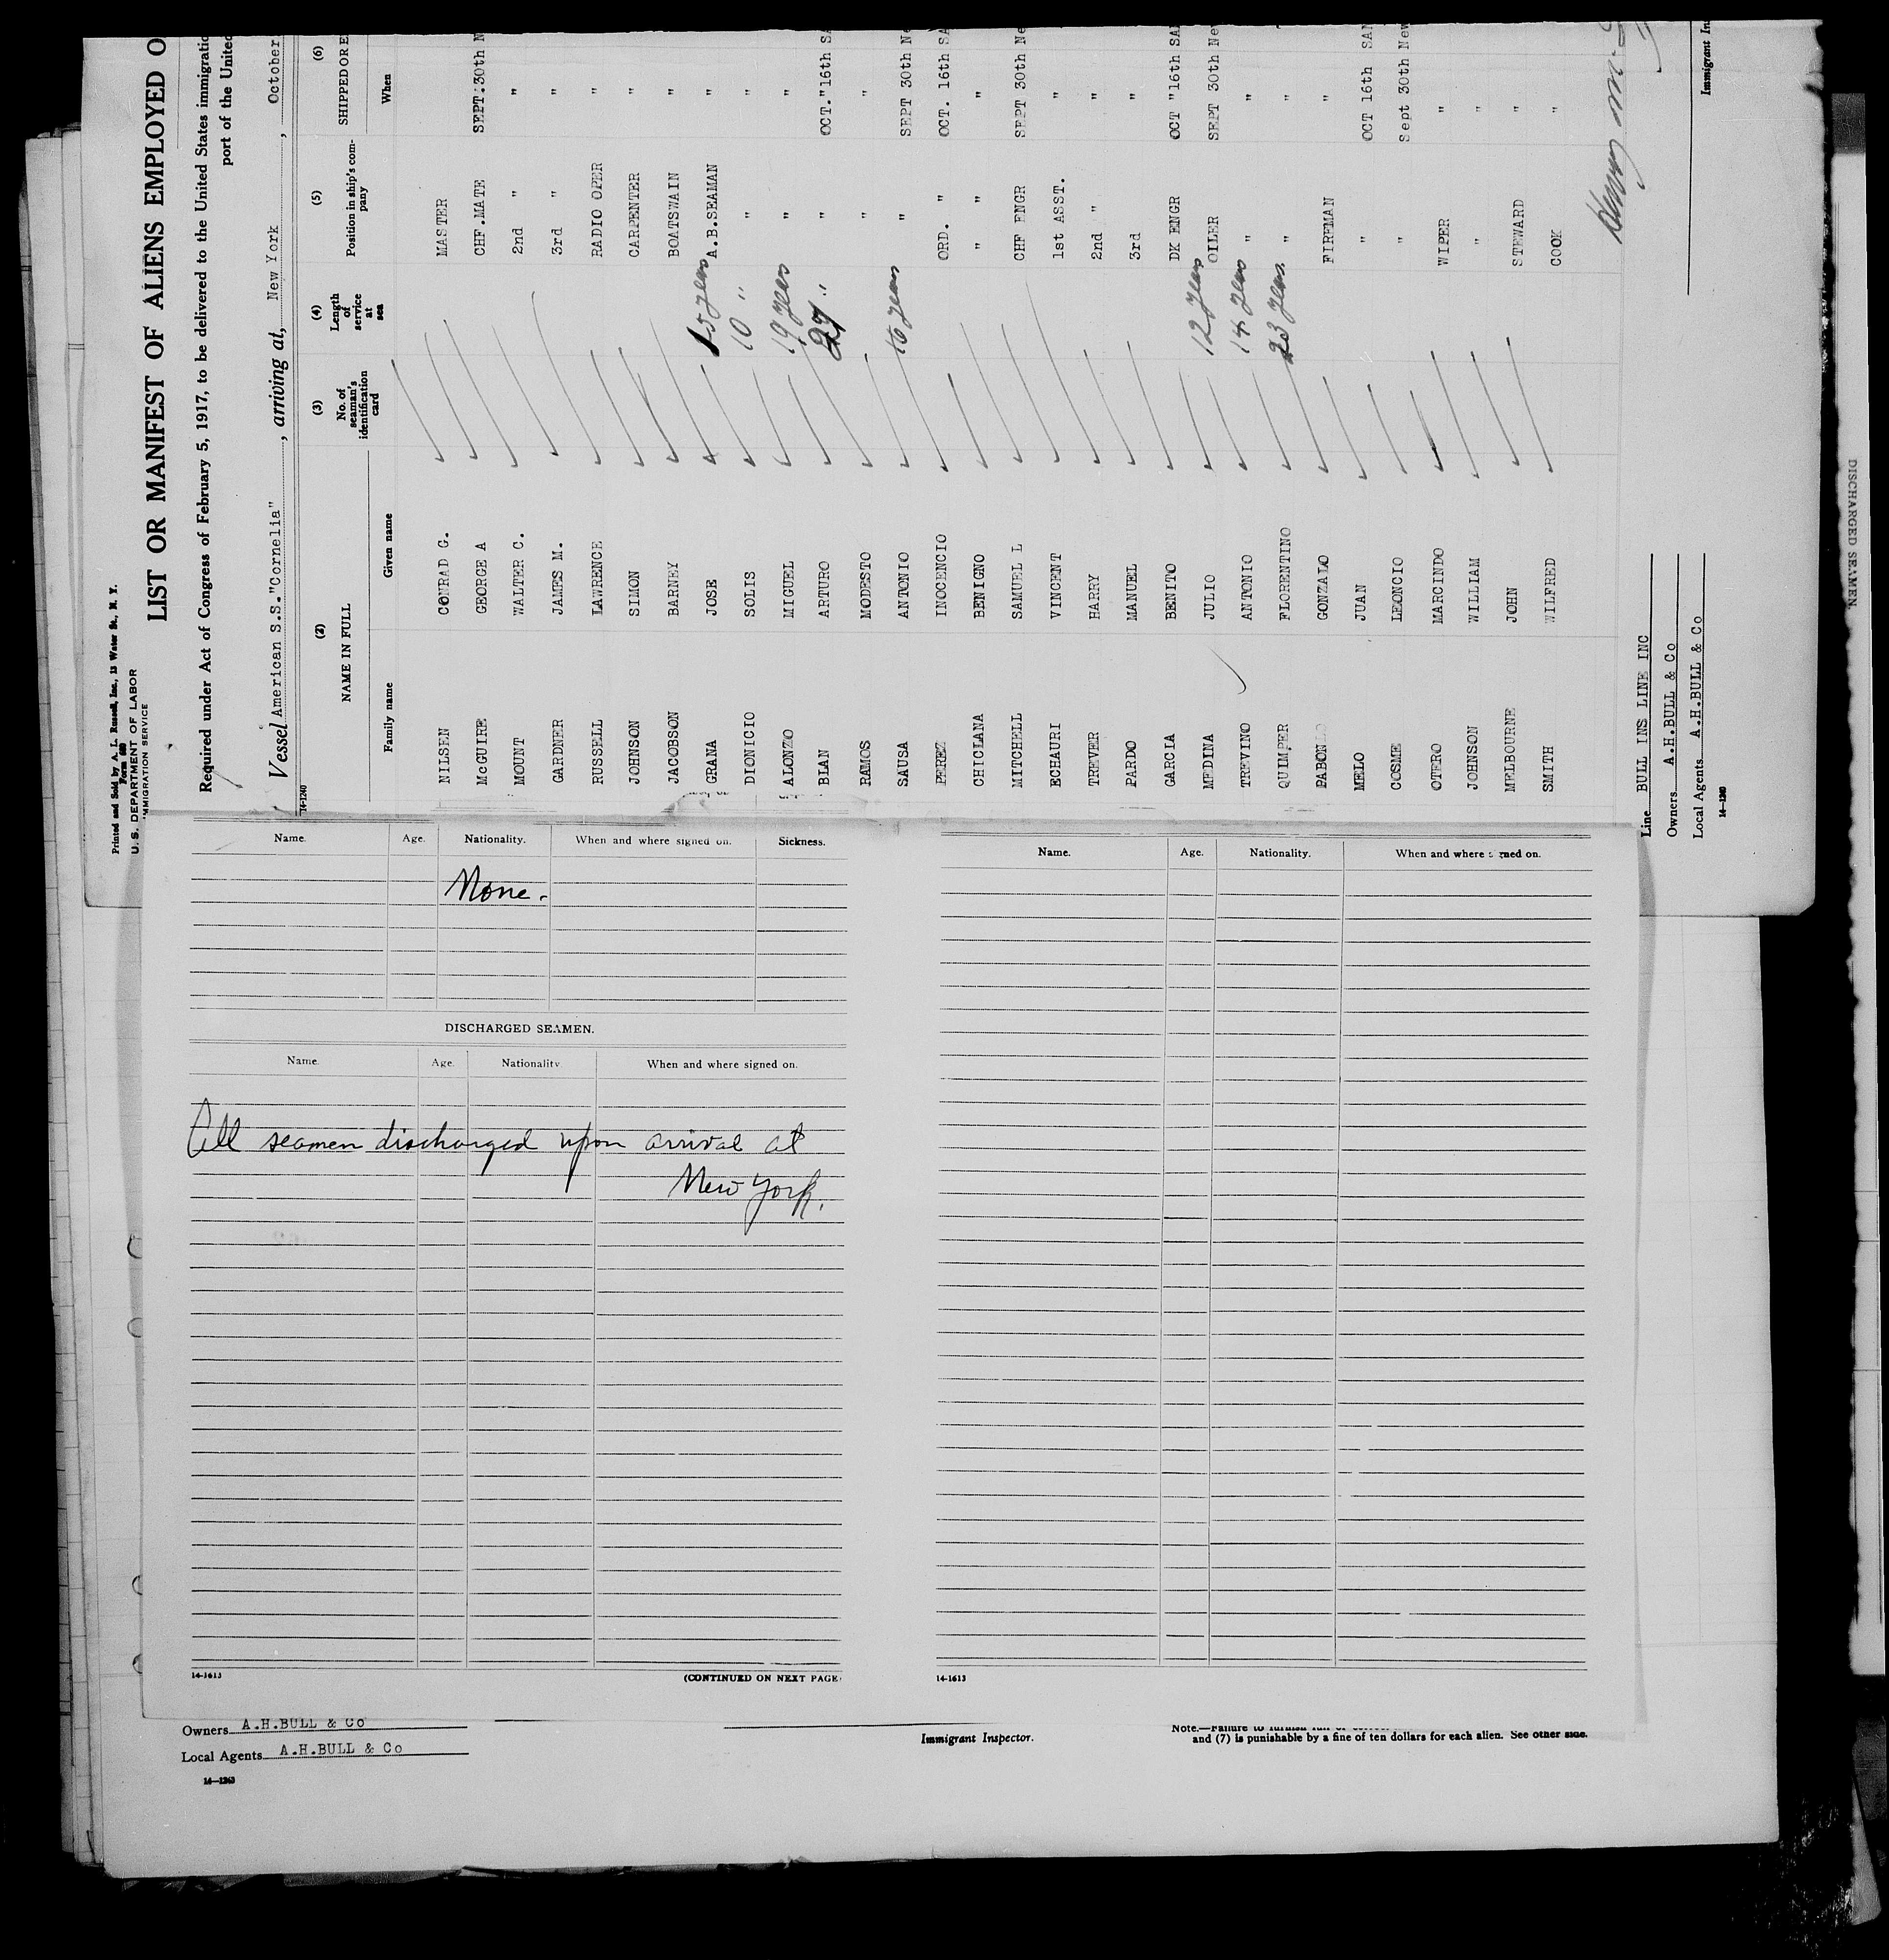 Printed and Sold by A. L. Russell, Inc., 13 Water St., N. Y.
Form 680
U. S. DEPARTMENT OF LABOR
IMMIGRATION SERVICE
LIST OR MANIFEST OF ALIENS EMPLOYED O
Required under Act of Congress of February 5, 1917, to be delivered to the United States immigratio
port of the United
Vessel American S.S."Cornelia", arriving at, New York, October
14-1240
(2) (3) (4) (5) (6)
NAME IN FULL No. of seaman's identification card Length of service at sea Position in ship's com-pany SHIPPED OR E
Family name Given name When
NILSEN CONRAD G. MASTER
McGUIRE GEORGE A CHF.MATE SEPT.30th N
MOUNT WALTER C. 2nd " "
GARDNER JAMES M. 3rd " "
RUSSELL LAWRENCE RADIO OPER "
JOHNSON SIMON CARPENTER "
JACOBSON BARNEY BOATSWAIN "
GRANA JOSE 15 years A.B.SEAMAN "
DIONICIO SOLIS 10 " " "
ALONZO MIGUEL 19 years " "
BLAN ARTURO 27 " " OCT."16th SA
RAMOS MODESTO " "
SAUSA ANTONIO 16 years " SEPT 30th Ne
PEREZ INOCENCIO ORD. " OCT. 16th SA
CHICLANA BENIGNO " "
MITCHELL SAMUEL L CHF ENGR SEPT 30th Ne
ECHAURI VINCENT 1st ASST. "
TREVER HARRY 2nd " "
PARDO MANUEL 3rd "
GARCIA BENITO DK ENGR OCT "16th SA
MEDINA JULIO 12 years OILER SEPT 30th New
TREVINO ANTONIO 14 years " "
QUIMPER FLORENTINO 23 years " "
PABON GONZALO FIREMAN "
MELO JUAN " OCT 16th SAN
COSME LEONCIO " Sept 30th New
OTERO MARCINDO WIPER "
JOHNSON WILLIAM " "
MELBOURNE JOHN STEWARD "
SMITH WILFRED COOK "
Line BULL INS LINE INC
Owners A.H.BULL & Co
Local Agents A.H.BULL & Co
14-1240
Immigrant In
Name. Age. Nationality. When and where signed on. Sickness.
None.
DISCHARGED SEAMEN.
Name. Age. Nationality. When and where signed on.
All seamen discharged upon arrival at
New York.
14-1613 (CONTINUED ON NEXT PAGE)
Name. Age. Nationality. When and where signed on.
14-1613
Owners A.H.BULL & Co
Local Agents A.H.BULL & Co
14-1240
Immigrant Inspector.
Note.—Failure to furnish
and (7) is punishable by a fine of ten dollars for each alien. See other side.
DISCHARGED SEAMEN.